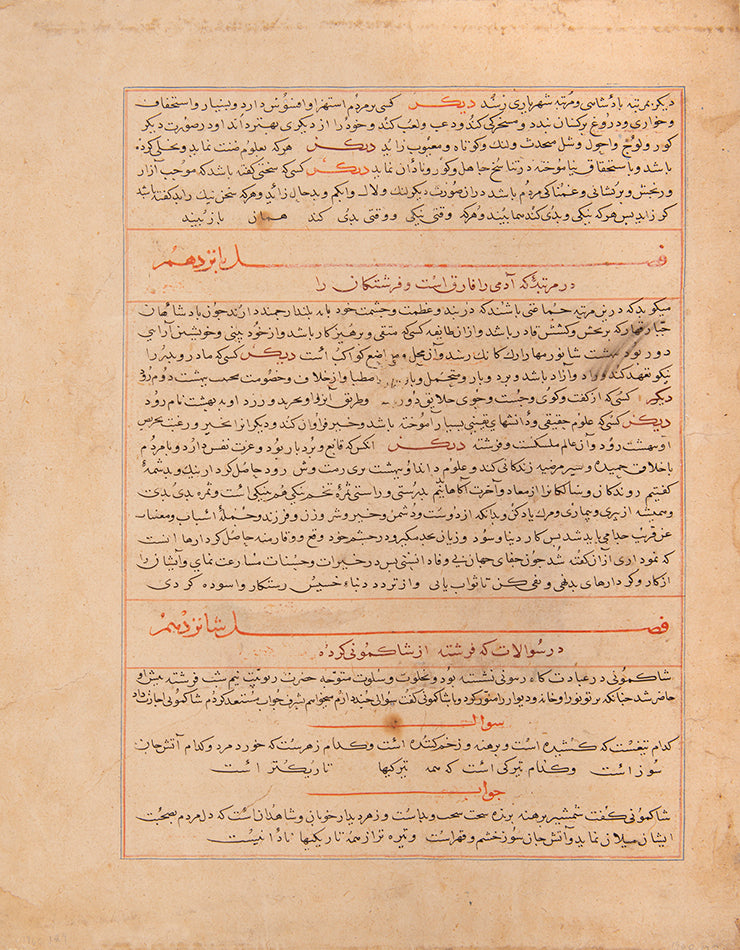 دیکر بمرتبه بادشاسی ومرتبه شهریاری رسند دیکر کسی بر مردم استهزا وافسوس دارد وبسیار واستخفاف
وخواری ودروغ برکسان بندد ومسخرکی کند ودعب ولعب کند وخود را از دیکری بهتر داند او در صورت دیکر
کور ولوچ واحول وشل محدث ولنک وکوتاه ومعیوب زاید دیکر هرکه بعلوم ضنت نماید وبخیلی کرده
باشد وباستحقاق نیاموخته در تناسخ جاهل وکور ونادان نماید دیکر کسی که سخنی کفته باشد که موجب آزار
ورنجش وپریشانی وغمناکی مردم باشد در آن صورت دیکر لنک ولال وابکم وبدحال زاید وهرکه سخن نیک راند کفته باشد
کر زاید پس هرکه نیکی وبدی کند سما بیند وهرکه وقتی نیکی ووقتی بدی کند همان باز بیند
فصل پانزدهم
در مرتبه که آدمی را فارق است وفرشتکان را
میکوید که درین مرتبه جماعتی باشند که دربند وعظمت وحشمت خود پایه بلند ارجمند دارند چون پادشاهان
جبار قهار که بر بخش وکشش قادر باشد واز آن طایفه کسی که متقی وپرهیزکار باشد واز خود بینی وخویشتن آرایی
دور بود بهشت رسند واز محل مواضع کواکب است دیکر کسی که مادر وپدر را
نیکو تعهد کند وراد وآزاد باشد وبرد وبار ومتحمل واز خلاف وخصومت بهشت دوم رود
دیکر کسی که از کفت وکوی وجست وجوی خلایق دور وطریق او بهشت نام رود
دیکر کسی که علوم حقیقی ودانشهای یقینی بسیار آموخته باشد وخیر فراوان کند ودیکرانرا بخیر ورغبت تحریص
او بهشت رود وآن عالم ملکست وفرشته دیکر آنکس که قانع وبردبار بود وعزت نفس دارد وبا مردم
باخلاق حمیده وسیر مرضیه زندکانی کند وعلوم داند او ببهشت رود حاصل کردار نیک وبد همه
کفتیم روندکان را از معاد وآخرت آکاهانیدیم بدرستی وراستی ثمره تخم نیکی هم نیکی است وثمره بدی بدی
وهمیشه از پیری وبیماری ومرک یاد کن وبدانکه از دوست ودشمن وخیر وشر وزن وفرزند وجمله اسباب
عن قریب جدا می باید شد پس کار دنیا وسود وزیان بجد مکیر ودر چشم خود وقع ووقار منه حاصل کردارها اینست
که نموداری از آن کفته شد چون جفای جهان بی وفا دانستی پس در خیرات وحسنات مسارعت نمای
از کار وکردارهای بد نفی کن تا ثواب یابی واز تردد دنیاء خسیس رستکار واسوده کردی
فصل شانزدهم
در سوالات که فرشته از شاکمونی کرده
شاکمونی در عبادت کاه رسونی نشسته بود وبخلوت وسلوت متوجه حضرت ربوبیت نیم شب فرشته پیش او
حاضر شد چنانکه پرتو نور او خانه ودیوار را منور کرد وبا شاکمونی کفت سوالی چند دارم میخواهم بشرف جواب مستعد کردم شاکمونی اجازت داد
سوال
کدام تیغست که کشیده است وبرهنه وزخم کننده است وکدام زهرست که خورد مرد وکدام آتش جان
سوز است وکدام تیرکی است که همه تیرکیها تاریکتر است
جواب
شاکمونی کفت شمشیر برهنه برنده سخن سخت وبد است وزهر دیدار خوبان وشاهدان است که دل مردم بصحبت
ایشان میلان نماید وآتش جان سوز خشم وقهر است وتیره تر از همه تاریکیها نادانیست